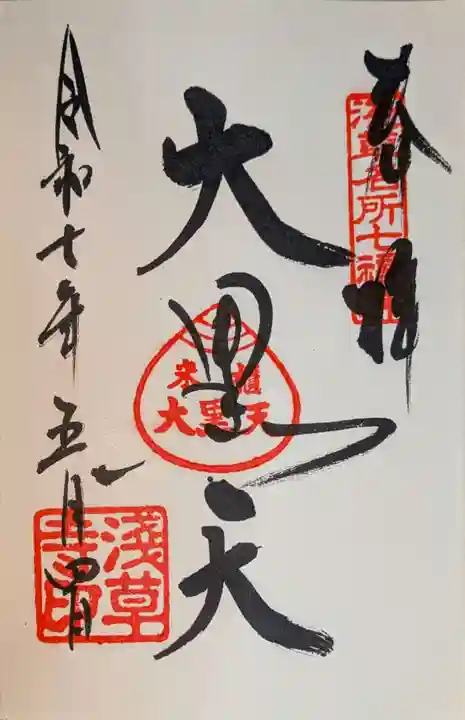 奉拝
浅草名所七福神
大黒天
米櫃
大黒天
令和七年五月四日
浅草
寺印